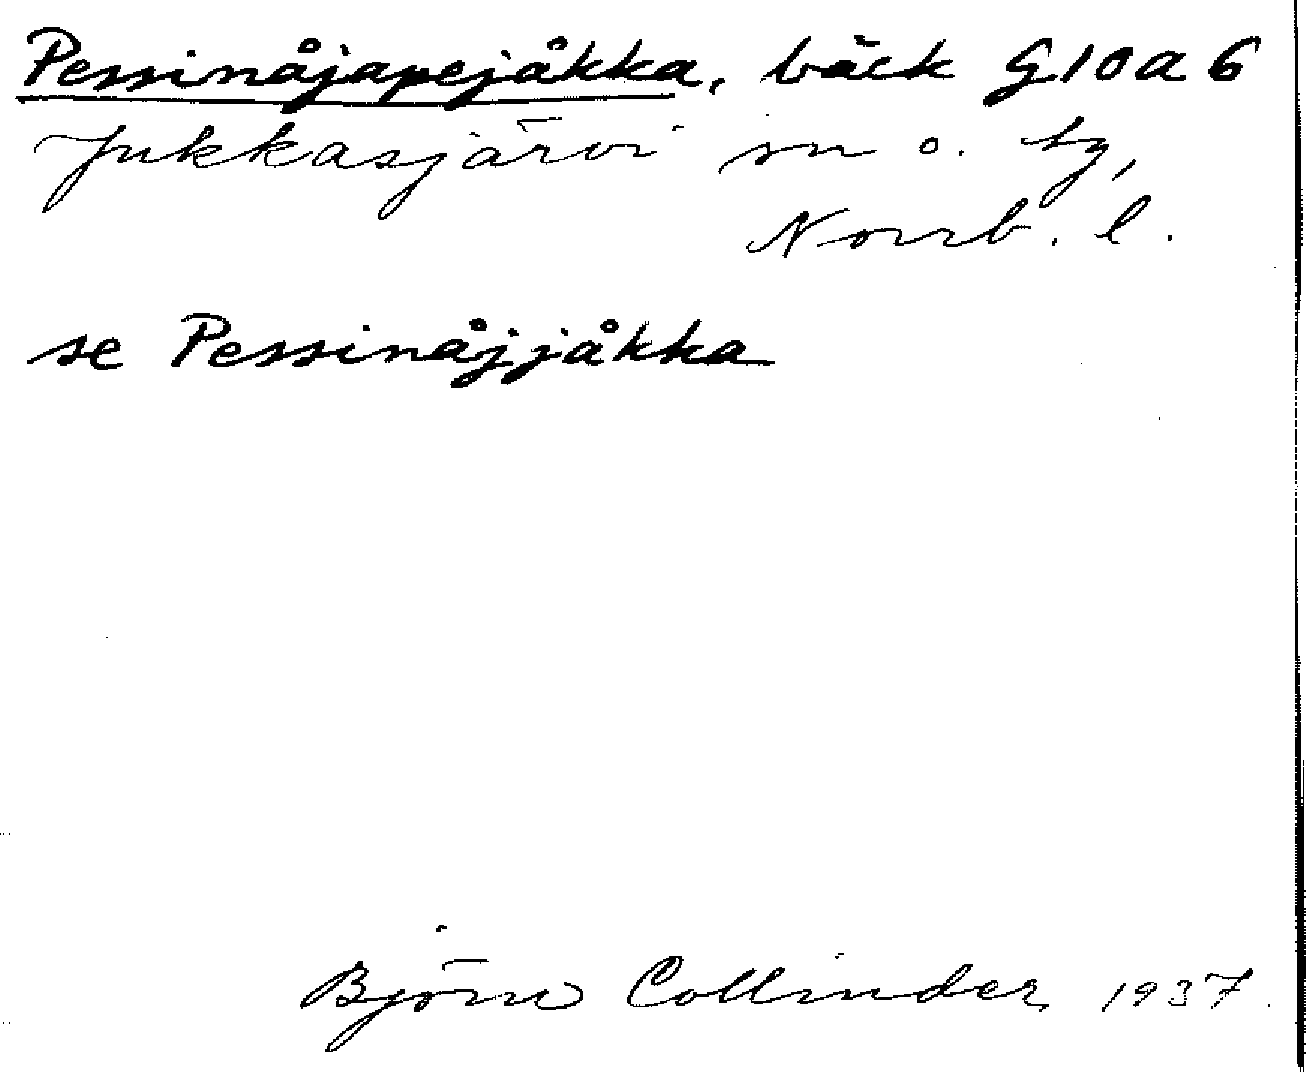 Pessinåjapejåkka, bäck G10a6
Jukkasjärvi sn o. tg,
Norrb. l.
se Pessinåjjåkka
Björn Collinder 1937.